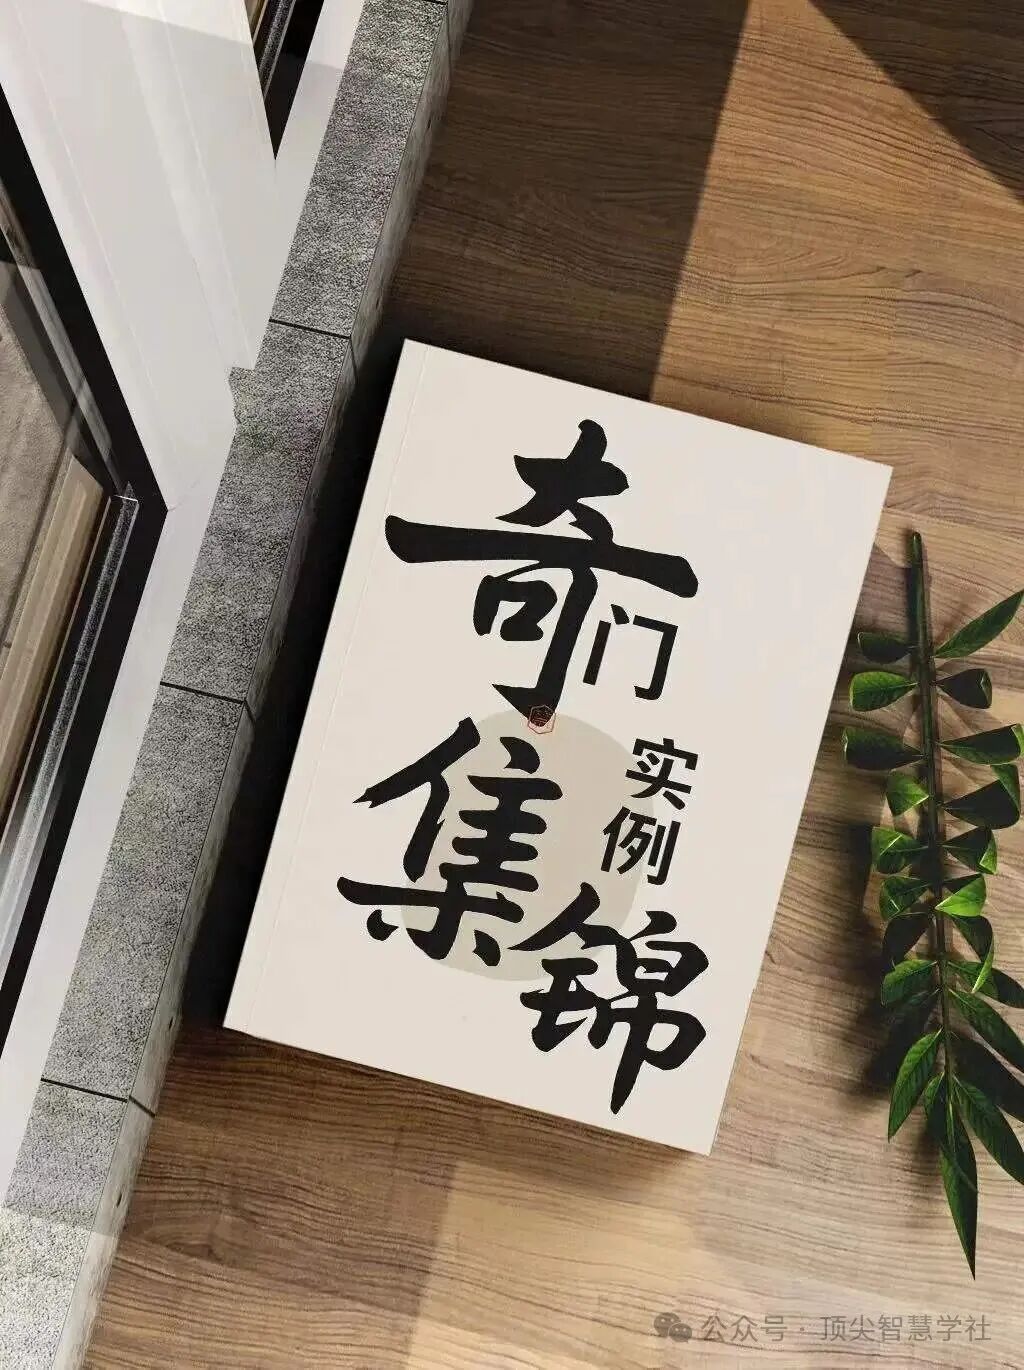 奇门
实例
集锦
公众号 · 顶尖智慧学社